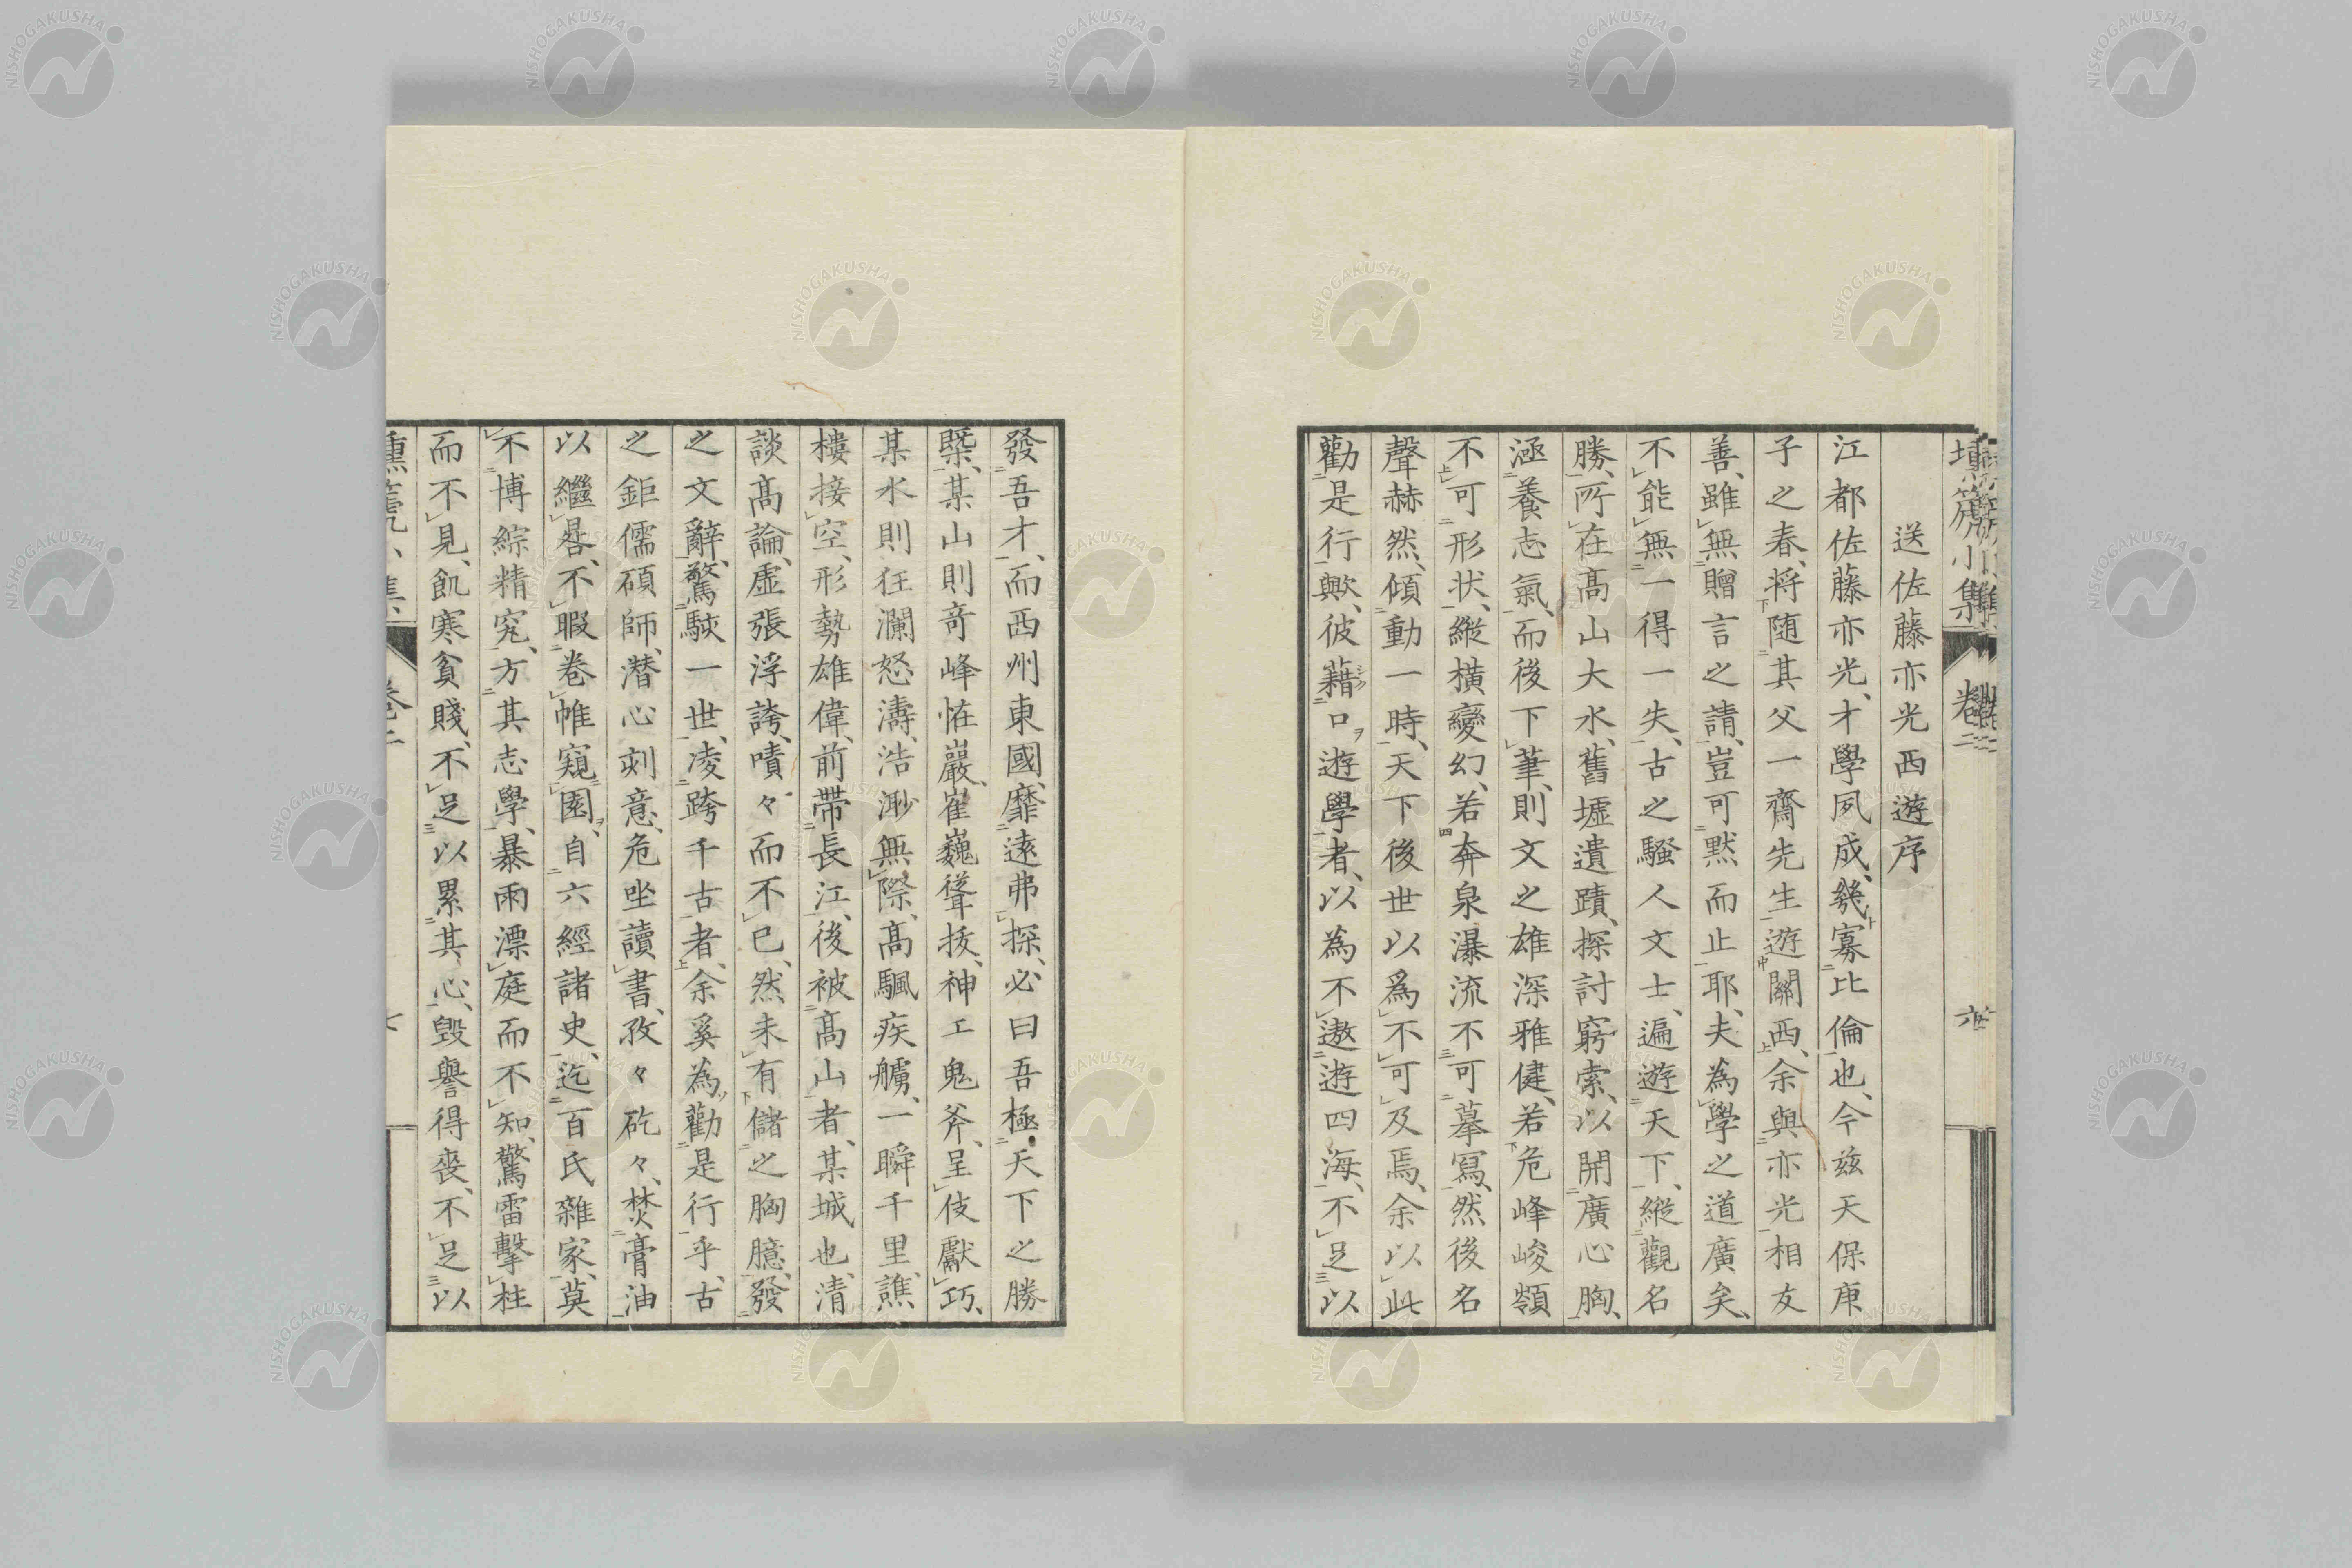 塤篪小集
卷二
六
送佐藤亦光西遊序
江都佐藤亦光、才學夙成、幾寡比倫也、今兹天保庚
子之春、将随其父一齋先生遊關西、余與亦光相友
善、雖無贈言之請、豈可黙而止耶、夫為學之道廣矣、
不能無一得一失、古之騷人文士、遍遊天下、縱觀名
勝、所在高山大水、舊墟遺蹟、探討窮索、以開廣心胸、
涵養志氣、而後下筆、則文之雄深雅健、若危峰峻嶺
不可形状、縱横變幻、若奔泉瀑流不可摹寫、然後名
聲赫然、傾動一時、天下後世以爲不可及焉、余以此
勸是行歟、彼藉口遊學者、以為不遨遊四海、不足以
發吾才、而西州東國、靡遠弗探、必曰吾極天下之勝
槩、某山則竒峰恠巖、崔巍聳抜、神工鬼斧、呈伎獻巧、
某水則狂瀾怒濤、浩渺無際、高颿疾艣、一瞬千里、譙
樓接空、形勢雄偉、前帶長江、後被高山者、某城也、清
談高論、虚張浮誇、嘖々而不已、然未有儲之胸臆、發
之文辭、驚駭一世、凌跨千古者、余奚為勸是行乎、古
之鉅儒碩師、潜心刻意、危坐讀書、孜々矻々、焚膏油
以繼晷、不暇卷帷窺園、自六經諸史、迄百氏雜家、莫
不博綜精究、方其志學、暴雨漂庭而不知、驚雷擊柱
而不見、飢寒貧賤、不足以累其心、毀譽得喪、不足以